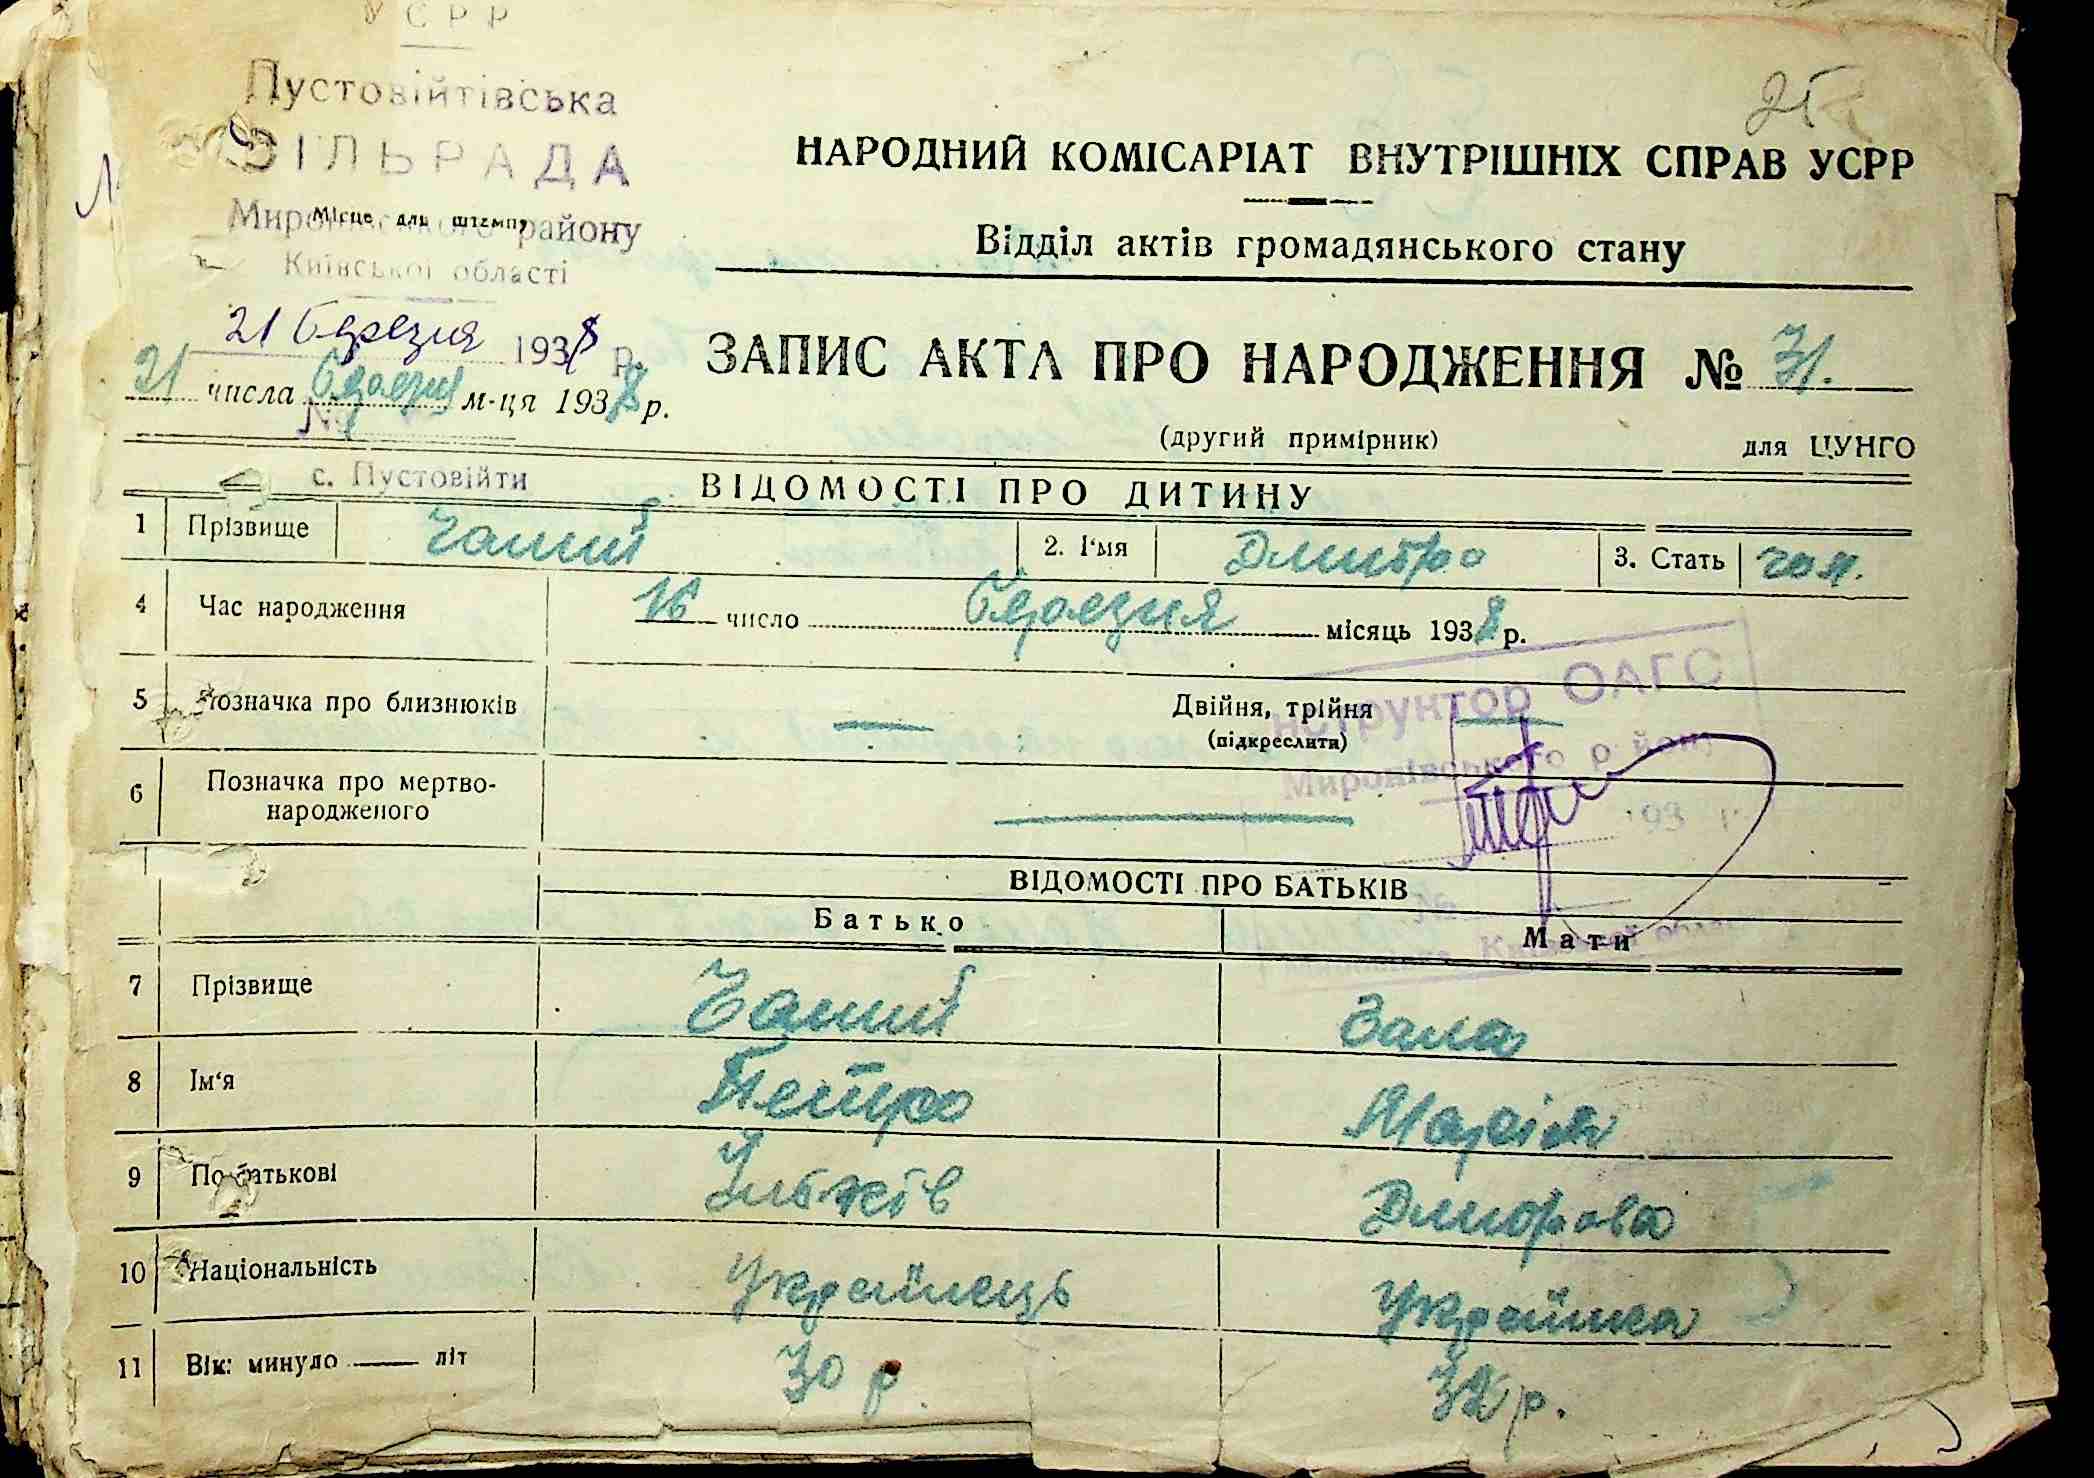 УСРР
Пустовійтівська
СІЛЬРАДА
Миронівського району
Місце для штемпу
Київської області
21 березня 1938 р.
25
НАРОДНИЙ КОМІСАРІАТ ВНУТРІШНІХ СПРАВ УСРР
Відділ актів громадянського стану
ЗАПИС АКТА ПРО НАРОДЖЕННЯ № 31.
21 числа березня м-ця 1938 р.
№
(другий примірник)
для ЦУНГО
с. Пустовійти
ВІДОМОСТІ ПРО ДИТИНУ
1 Прізвище Чалий 2. І'мя Дмитро 3. Стать чол.
4 Час народження 16 число березня місяць 1938 р.
5 Позначка про близнюків — Двійня, трійня —
(підкреслити)
6 Позначка про мертво-
народженого —
Інструктор ОАГС
Миронівського району
193 р.
№
Київської області
ВІДОМОСТІ ПРО БАТЬКІВ
Батько Мати
7 Прізвище Чалий Зала
8 Ім'я Петро Марія
9 По батькові Дмитрова
10 Національність Українець Українка
11 Вік: минуло — літ 30 р. р.